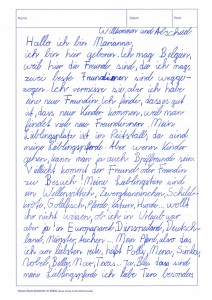 Willkommen und Abschied
Hallo ich bin Marianna,
ich bin hier geboren. Ich mag Belgien,
weil hier die Freunde sind, die ich mag,
zwei beste Freundinnen sind wegge-
zogen. Ich vermisse sie, aber ich habe
eine neue Freundin. Ich finde, dass es gut
ist, dass neue Kinder kommen, weil man
findet viele neue Freundinnen. Mein
Lieblingsplatz ist im Reitstall, da sind
meine Lieblingspferde. Aber wenn Kinder
gehen, kann man ja auch Brieffreunde sein.
Vielleicht kommt der Freund oder Freundin
zu Besuch! Meine Lieblingstiere sind
ein Wellensittich, Zwergkaninchen, Schild-
kröte, Pferde, Katzen, Hunde... wollt
ihr nicht wissen, ob ich in Urlaub war
aber ja in Europapark, Deutsch-
land, Münster, Aachen... Mein Pferd, also das
ich am liebsten reite, heißt Polly, Mona,
Max, das sind
meine Lieblingspferde ich liebe Tiere besonders